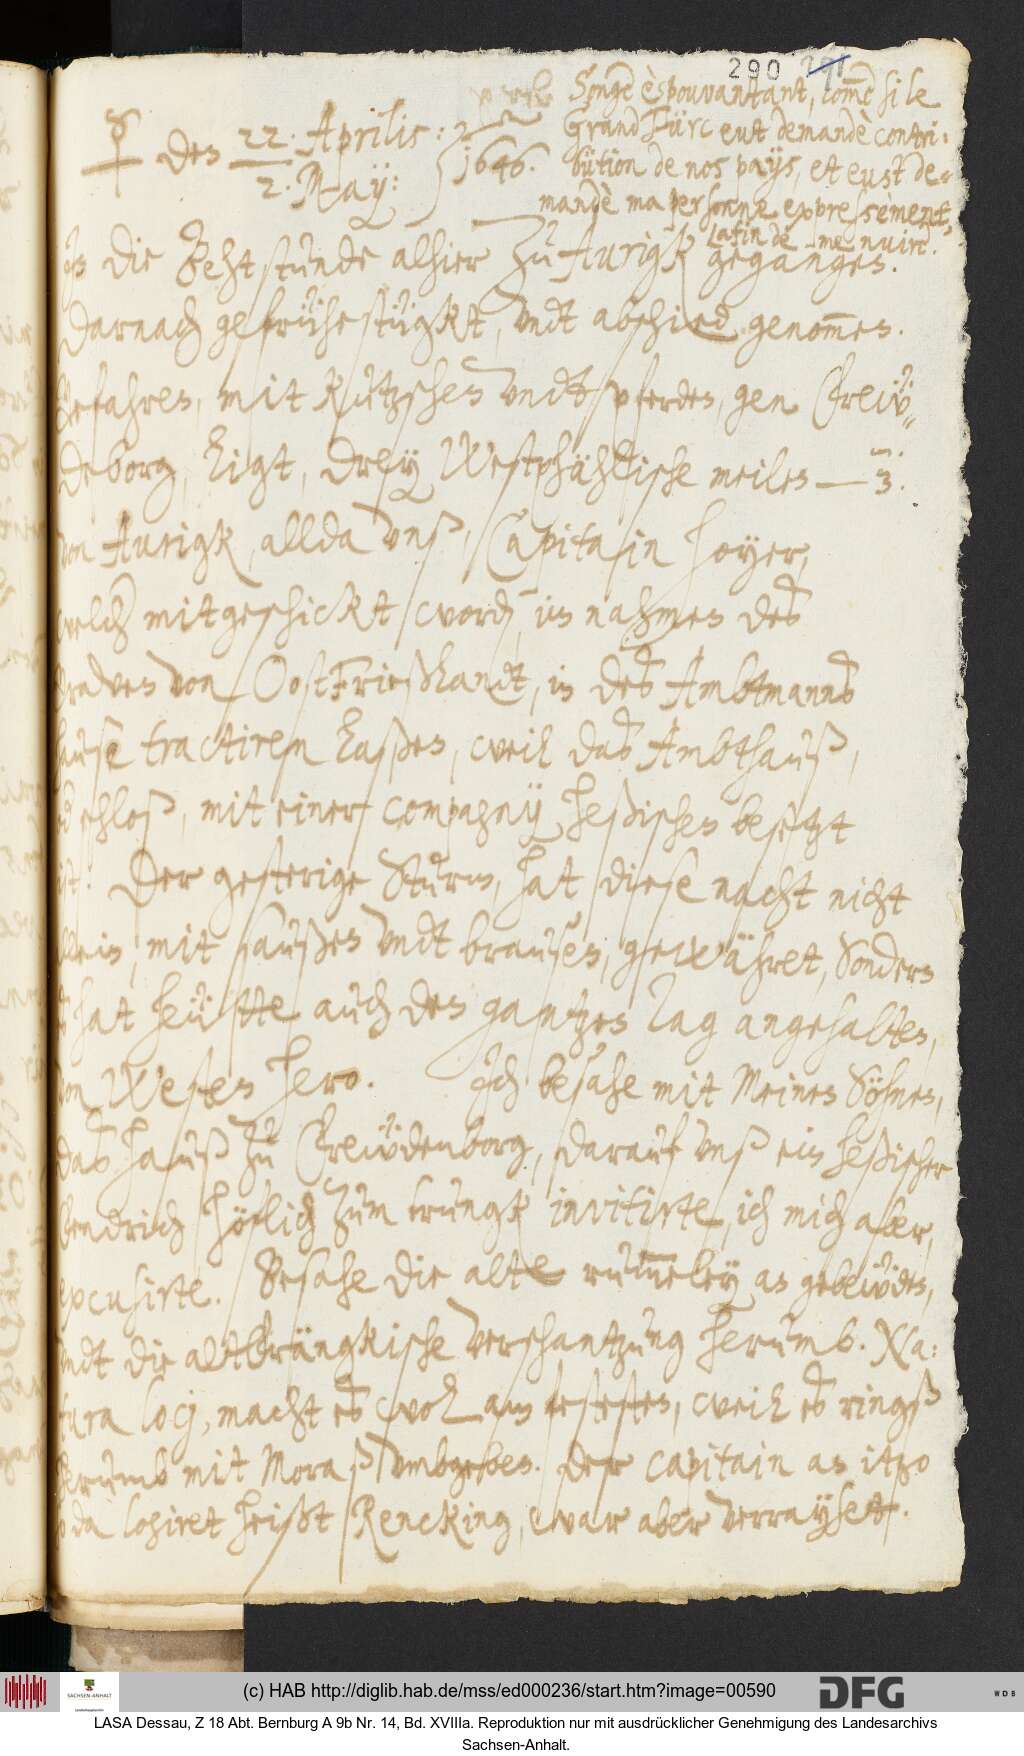 290 291
Songe èspouvantant, com̃e si le
Grand Türc eust demandè contri-
bütion de nos pays, et eust de-
mandè ma personne expressèment,
afin de me nuire.
☿ den 22. Aprilis: 1646.
2. May:
die Behtstunde alhier zu Aurigk gegangen.
Darnach gefrühestügkt, vndt abschied genom̅en.
Gefahren, mit kutzschen vndt pferden, gen Freẅ-
deborg, ligt, drey Westphählische meilen — 3.
von Aurigk, allda vnß, Capitain Hoyer,
welcher mitgeschickt word̅, in nahmen des
Graven von OostFrießlandt, in des Ambtmanns
hause tractiren laßen, weil das Ambthauß,
schloß, mit einer compagny Heßischen besetzt
ist: Der gesterige Sturm, hat diese nacht nicht
allein, mit saußen vndt brausen, gewähret, sondern
hat heütte auch den gantzen Tag angehalten,
von Westen hero. Ich besahe mit Meinen Söhnen,
das hauß zu Freẅdenborg, darauf vnß ein heßischer
fendrich höflich zum trungk invitirte, ich mich aber,
excusirte. Besahe die alte ruineley an gebeẅden,
vndt die altfrängkische verschantzung herumb. Na-
tura locj, macht es wol am festesten, weil es ringß
herumb mit Moraß vmbgeben. Der capitain an itzo
da logiret heißt Rencking, war aber verrayset.
(c) HAB http://diglib.hab.de/mss/ed000236/start.htm?image=00590
SACHSEN-ANHALT
DFG
WDB
LASA Dessau, Z 18 Abt. Bernburg A 9b Nr. 14, Bd. XVIIIa. Reproduktion nur mit ausdrücklicher Genehmigung des Landesarchivs
Sachsen-Anhalt.